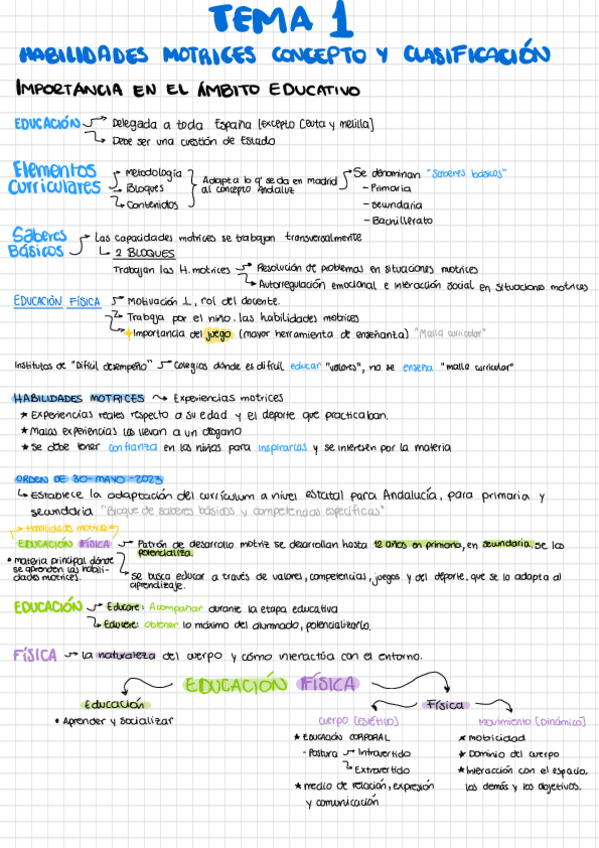 TEMA 1
HABILIDADES MOTRICES CONCEPTO Y CLASIFICACIÓN
IMPORTANCIA EN EL ÁMBITO EDUCATIVO
EDUCACIÓN → Delegada a toda España [excepto Ceuta y Melilla]
↳ Debe ser una cuestión de Estado
Elementos Curriculares → Metodología
→ Bloques
↳ Contenidos
Adapta lo q' se da en madrid
al concepto Andaluz
→ Se denominan "Saberes básicos"
- Primaria
- secundaria
- Bachillerato
Saberes Básicos → Las capacidades motrices se trabajan transversalmente
↳ 2 BLOQUES
Trabajan las H. motrices → Resolución de problemas en situaciones motrices
↳ Autorregulación emocional e interacción social en situaciones motrices
EDUCACIÓN FÍSICA → Motivación ⊥, rol del docente.
↳ Trabaja por el niño. las habilidades motrices
↳ Importancia del juego (mayor herramienta de enseñanza) "Malla curricular"
Institutos de "Difícil desempeño" → Colegios dónde es difícil educar "valores", no se enseña "malla curricular"
HABILIDADES MOTRICES → Experiencias motrices
★ Experiencias reales respecto a su edad y el deporte que practicaban.
★ Malas experiencias las llevan a un desgano
★ Se debe tener confianza en las niñas para inspirarlas y se interesen por la materia
ORDEN DE 30-MAYO-2023
↳ Establece la adaptación del currículum a nivel estatal para Andalucía, para primaria y
secundaria "Bloque de saberes básicos y competencias específicas"
→ Habilidades motrices
EDUCACIÓN FÍSICA → Patrón de desarrollo motriz se desarrollan hasta 12 años en primaria, en secundaria se las
potencializa.
• materia principal dónde
se aprenden las habili-
dades motrices.
↳ se busca educar a través de valores, competencias, juegos y del deporte, que se lo adapta al
aprendizaje.
EDUCACIÓN → Educare: Acompañar durante la etapa educativa
↳ Educere: obtener lo máximo del alumnado, potencializarlo.
FÍSICA → La naturaleza del cuerpo y cómo interactúa con el entorno.
EDUCACIÓN FÍSICA
Educación
• Aprender y socializar
Física
Cuerpo [Estético]
★ EDUCACIÓN CORPORAL
- Postura → Intravertido
↳ Extravertido
★ medio de relación, expresión
y comunicación
Movimiento [Dinámico]
★ motricidad
★ Dominio del cuerpo
★ Interacción con el espacio,
los demás y los objetivos.